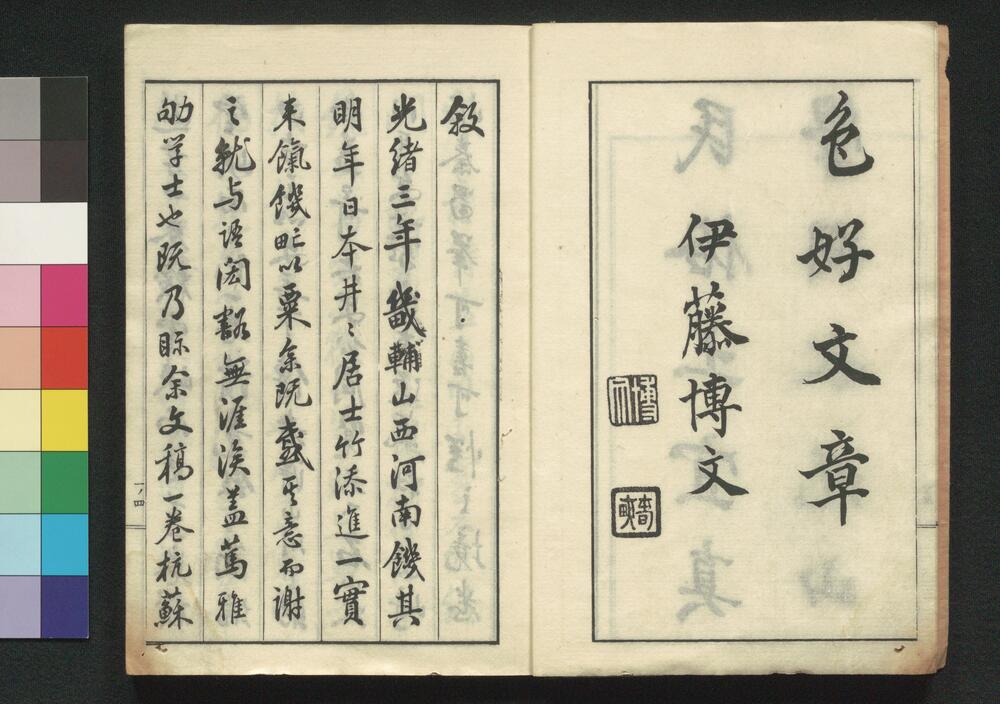 色好文章
伊藤博文
敘
光緒三年畿輔山西河南饑其
明年日本井〻居士竹添進一實
来餼饑氓以粟余既盛其意而謝
之就与語閎豁無涯涘盖篤雅
劬学士也既乃眎余文稿一卷杭蘇